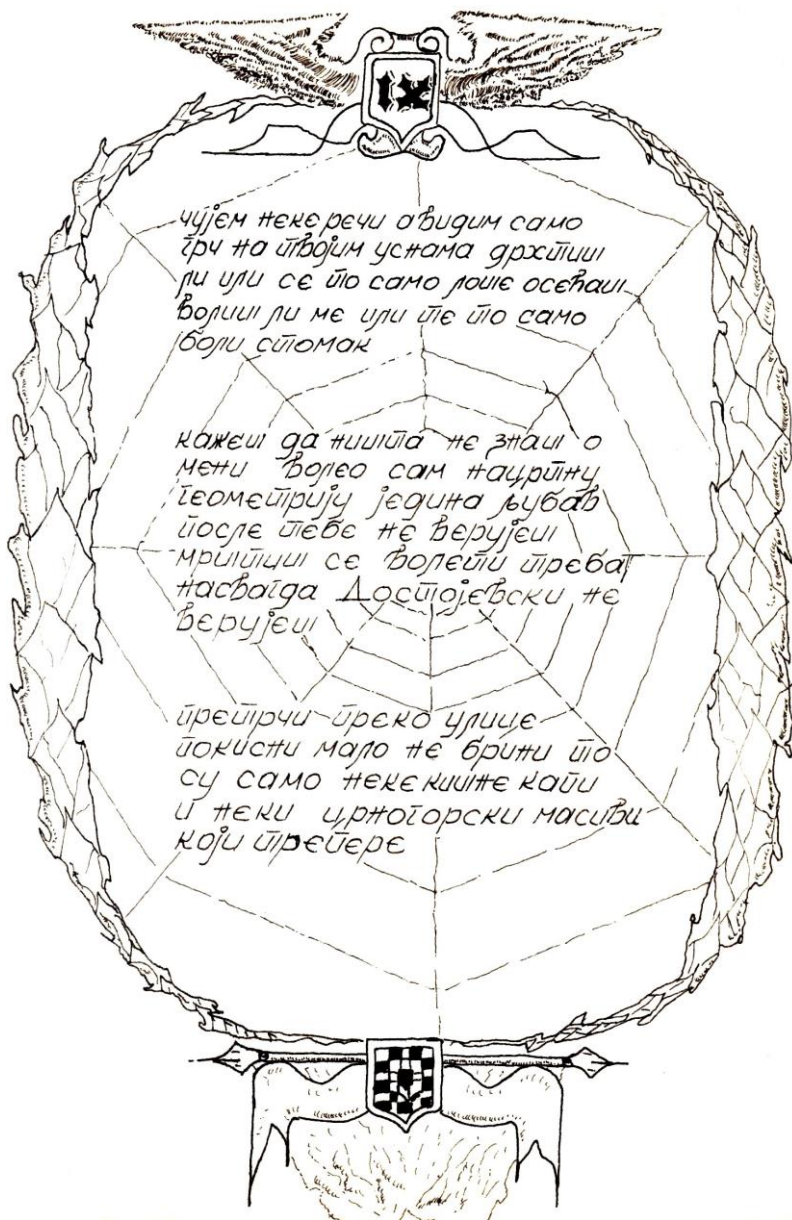 IX
чујем неке речи а видим само
грч на твојим уснама дрхтиш
ли или се то само лоше осећаш
волиш ли ме или те то само
боли стомак
кажеш да ништа не знаш о
мени волео сам нацртну
геометрију једина љубав
после тебе не верујеш
мрштиш се волети треба
насвагда Достојевски не
верујеш
претрчи преко улице
покисни мало не брини то
су само неке кишне капи
и неки црногорски масиви
који трепере